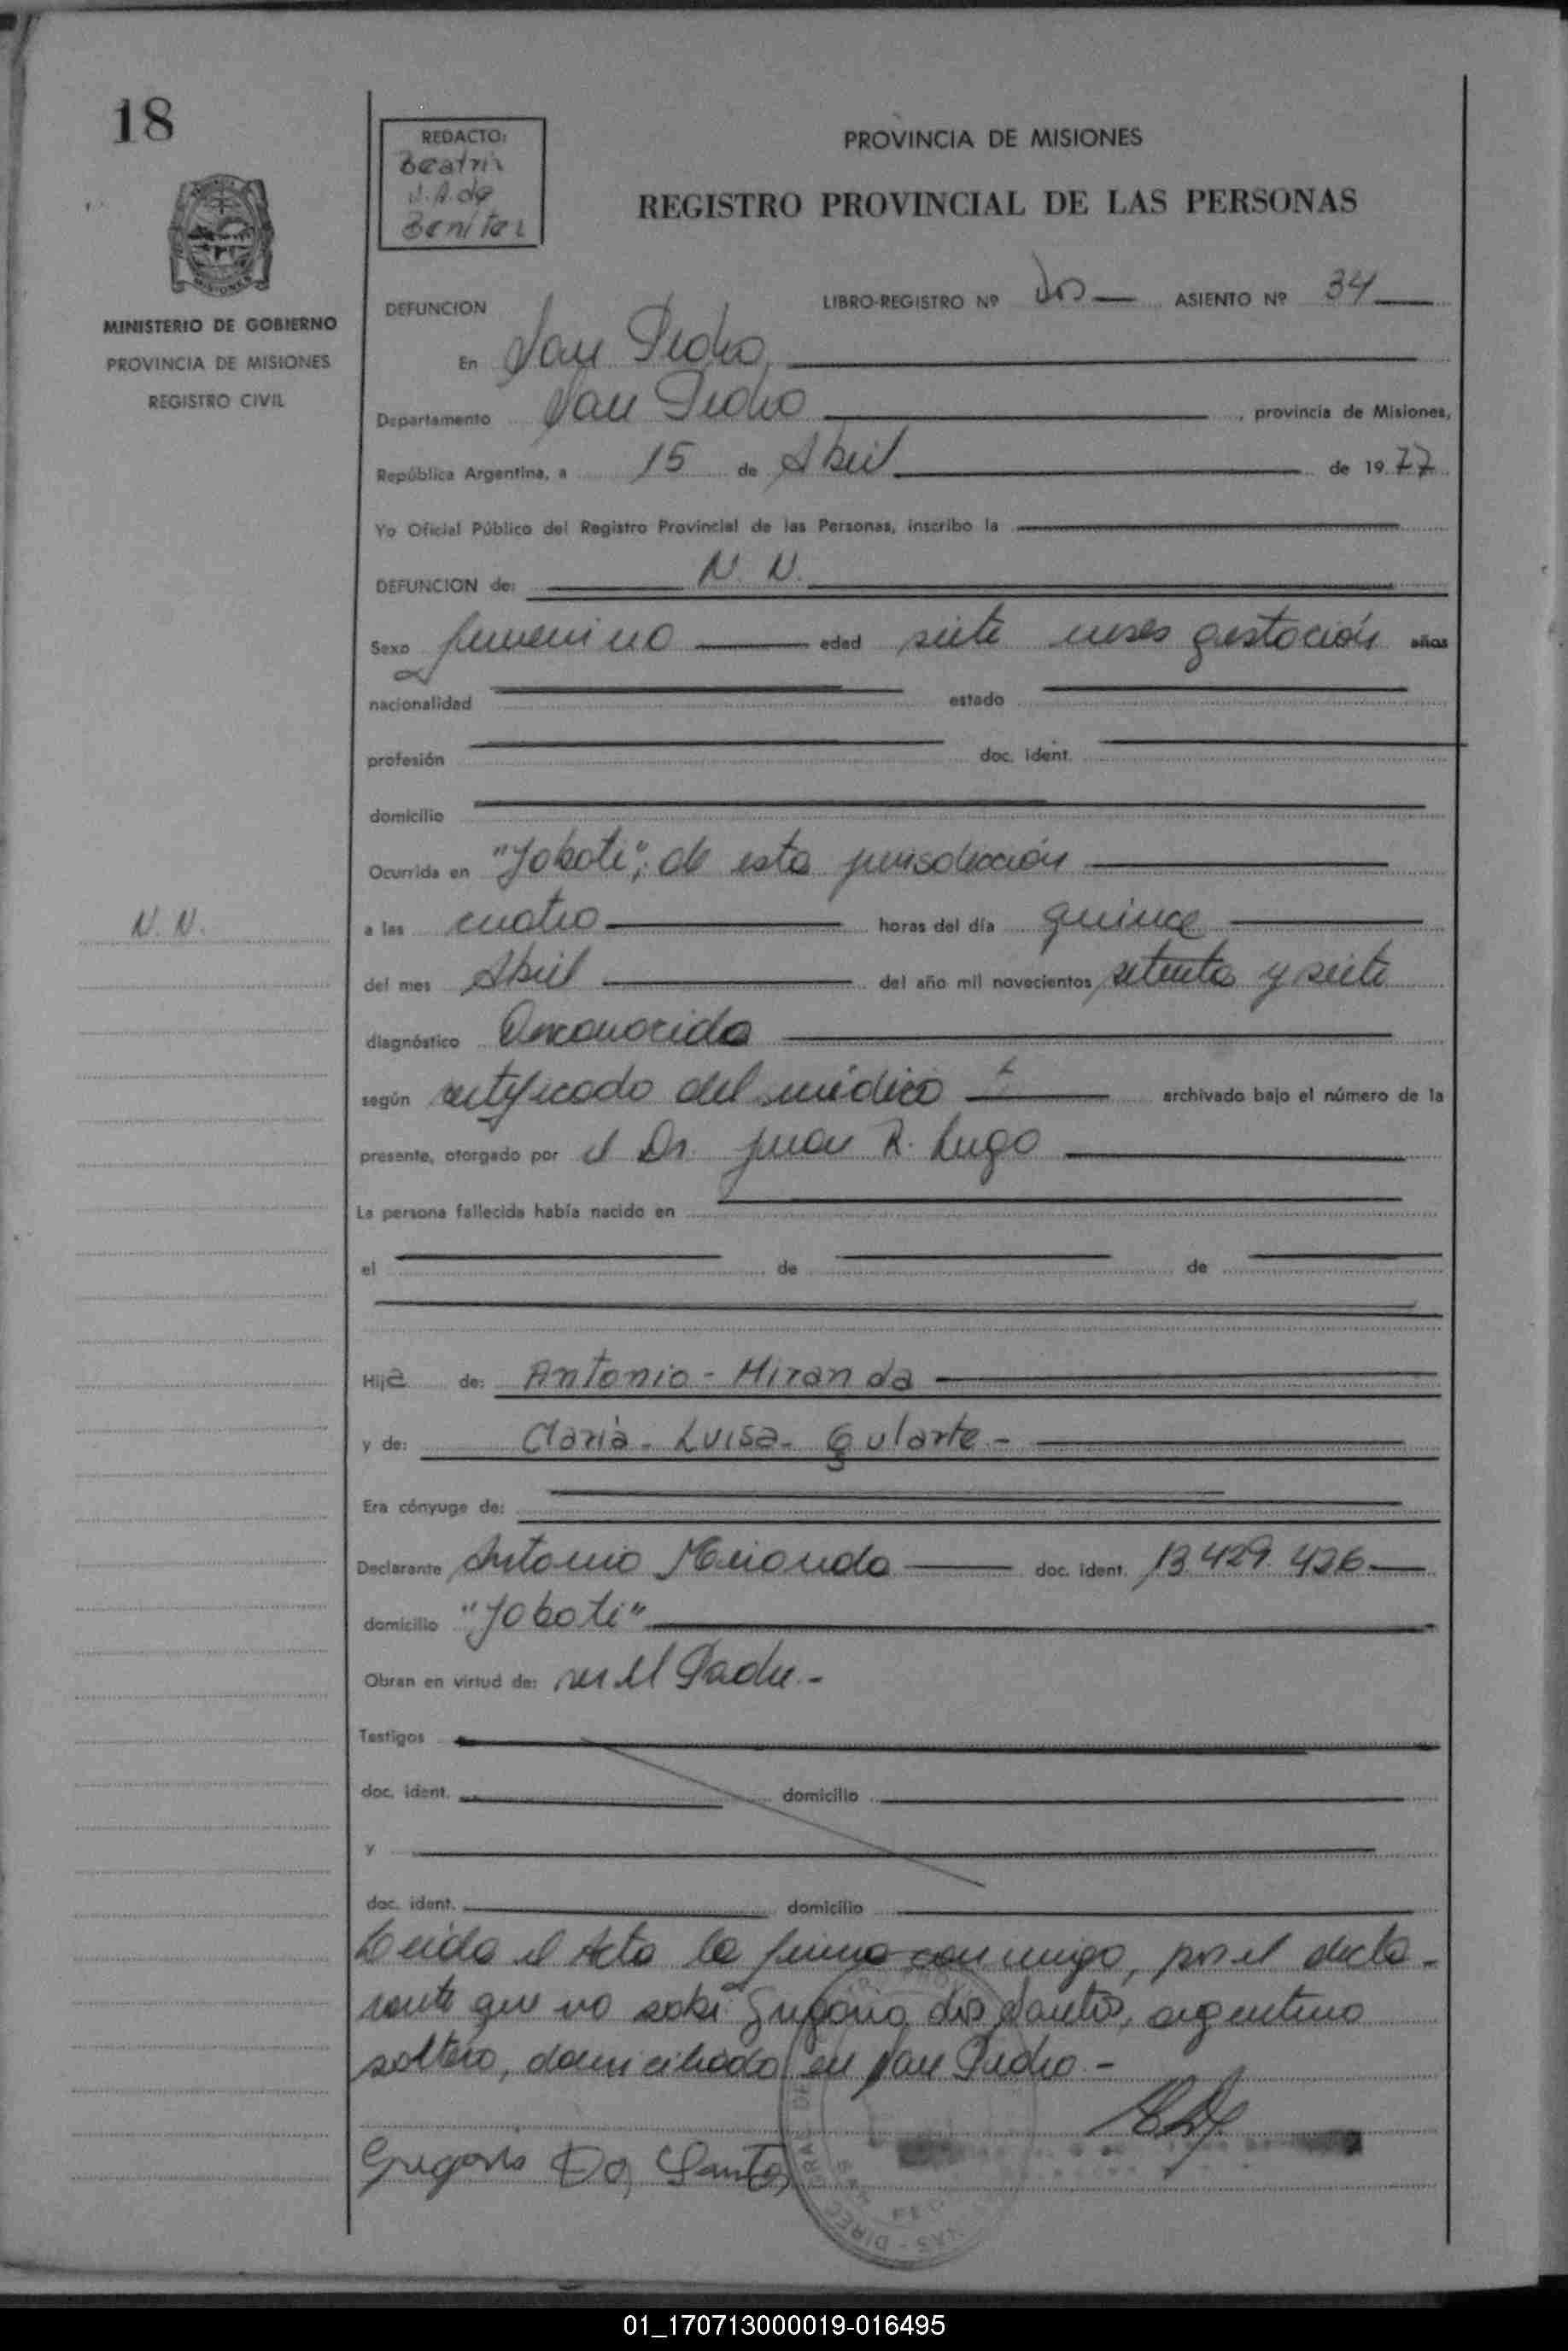 18
REDACTO:
Beatriz
J. A. de
Benitez
PROVINCIA DE MISIONES
REGISTRO PROVINCIAL DE LAS PERSONAS
MISIONES
MINISTERIO DE GOBIERNO
PROVINCIA DE MISIONES
REGISTRO CIVIL
DEFUNCION LIBRO-REGISTRO Nº dos ASIENTO Nº 34
En San Pedro,
Departamento San Pedro, provincia de Misiones,
República Argentina, a 15 de Abril de 1977
Yo Oficial Público del Registro Provincial de las Personas, inscribo la
DEFUNCION de: N. N.
Sexo femenino edad siete meses gestación años
nacionalidad estado
profesión doc. ident.
domicilio
Ocurrida en "Yaboti", de esta jurisdicción
N. N.
a las cuatro horas del día quince
del mes Abril del año mil novecientos setenta y siete
diagnóstico Desconocida
según certificado del médico archivado bajo el número de la
presente, otorgado por el Dr. Juan R. Lugo
La persona fallecida había nacido en
el de de
Hija de: Antonio - Miranda
y de: Maria - Luisa - Gularte -
Era cónyuge de:
Declarante Antonio Miranda doc. ident. 13.429.426
domicilio "Yaboti"
Obran en virtud de: ser el Padre.-
Testigos
doc. ident. domicilio
y
doc. ident. domicilio
Leida el Acta la firma conmigo, por el decla-
rante que no sabe Gregorio dos Santos, argentino
soltero, domiciliado en San Pedro.-
Gregorio Dos Santos
01_170713000019-016495